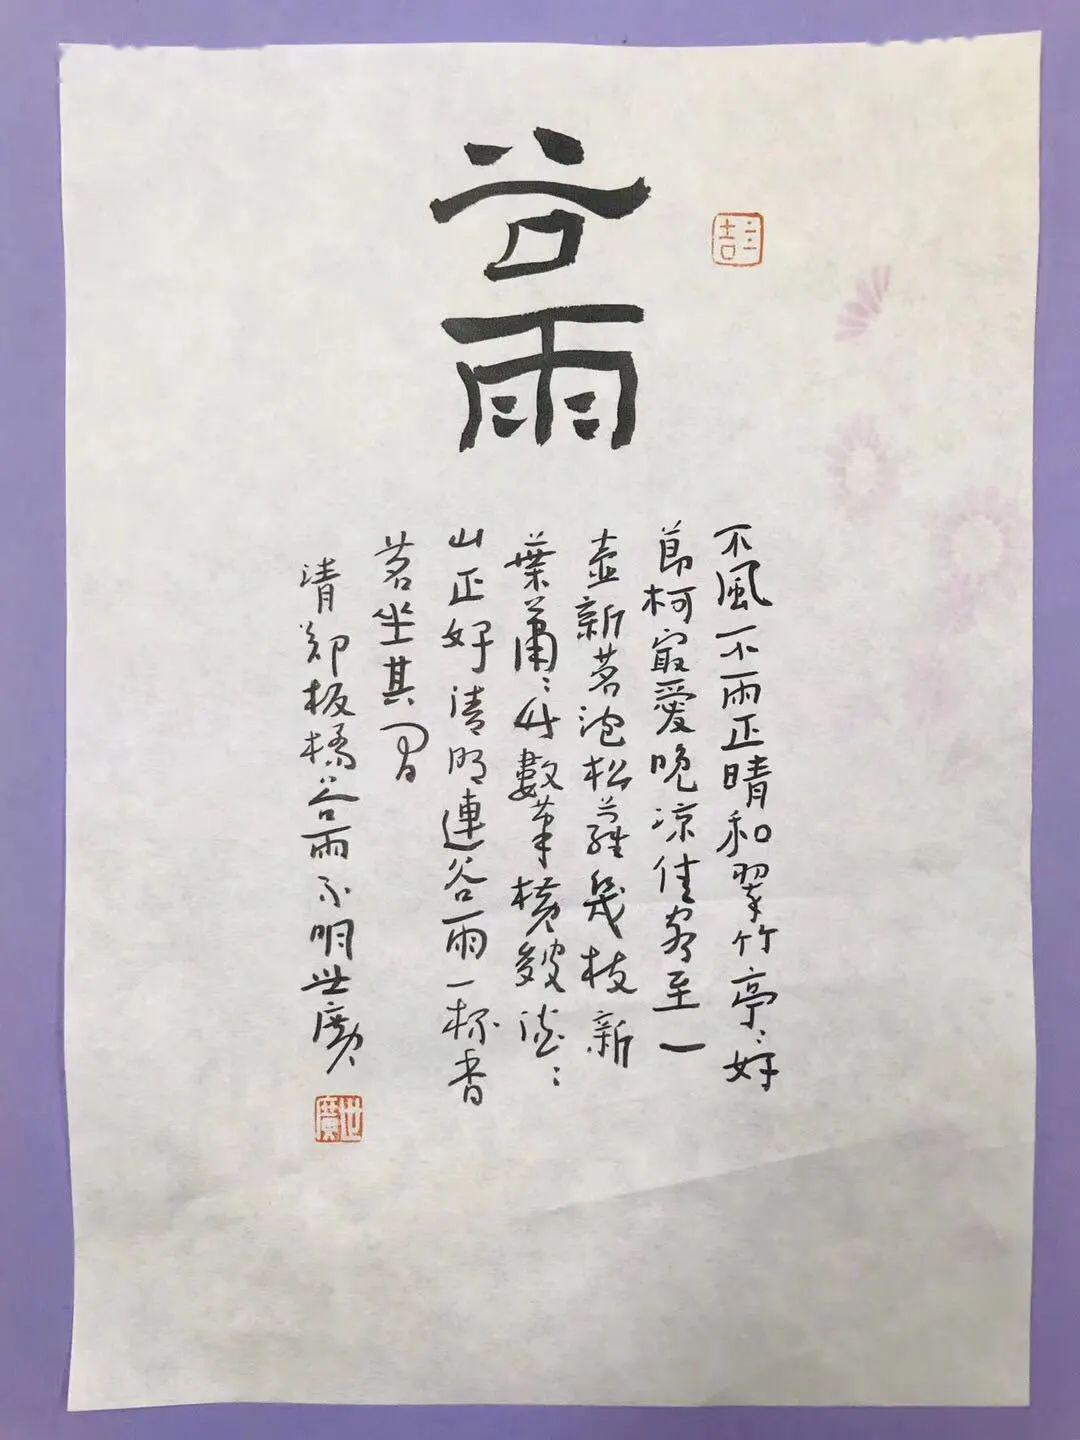 谷雨
彭
不風不雨正晴和翠竹亭:好
節柯最愛晚凉佳客至一
壺新茗泡松蘿幾枝新
葉蕭:竹數筆橫皴淡:
山正好清明連谷雨一杯香
茗坐其間
清鄭板橋谷雨 明世廣
世廣